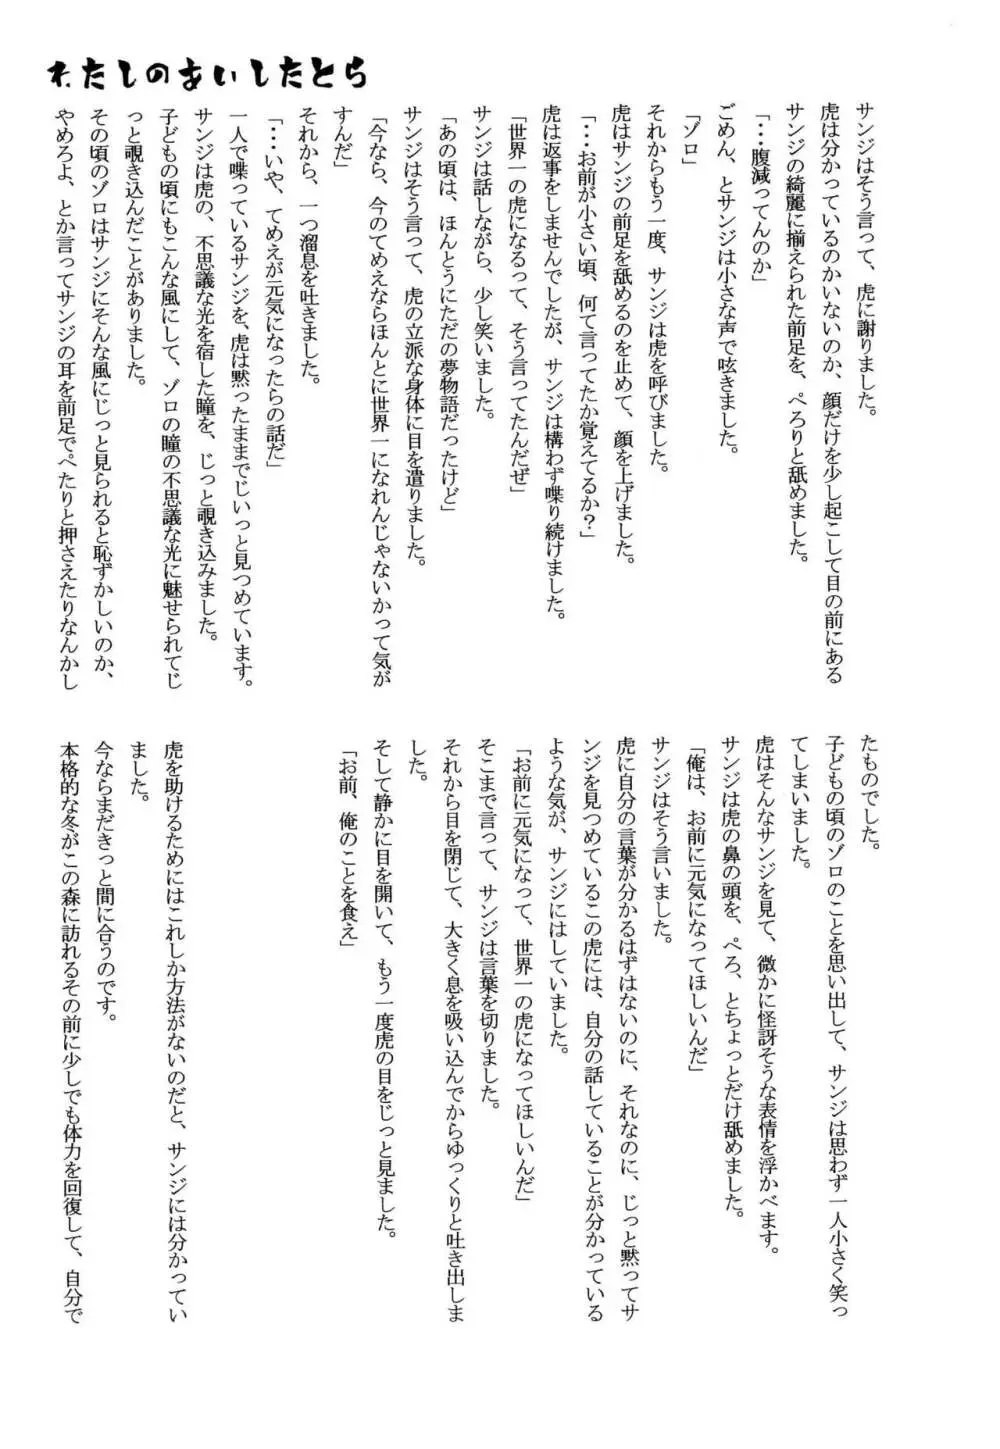 わたしのあいしたとら
サンジはそう言って、虎に謝りました。
虎は分かっているのかいないのか、顔だけを少し起こして目の前にある
サンジの綺麗に揃えられた前足を、ぺろりと舐めました。
「・・・腹減ってんのか」
ごめん、とサンジは小さな声で呟きました。
「ゾロ」
それからもう一度、サンジは虎を呼びました。
虎はサンジの前足を舐めるのを止めて、顔を上げました。
「・・・お前が小さい頃、何て言ってたか覚えてるか？」
虎は返事をしませんでしたが、サンジは構わず喋り続けました。
「世界一の虎になるって、そう言ってたんだぜ」
サンジは話しながら、少し笑いました。
「あの頃は、ほんとうにただの夢物語だったけど」
サンジはそう言って、虎の立派な身体に目を遣りました。
「今なら、今のてめえならほんとに世界一になれんじゃないかって気が
すんだ」
それから、一つ溜息を吐きました。
「・・・いや、てめえが元気になったらの話だ」
一人で喋っているサンジを、虎は黙ったままでじいっと見つめています。
サンジは虎の、不思議な光を宿した瞳を、じっと覗き込みました。
子どもの頃にもこんな風にして、ゾロの瞳の不思議な光に魅せられてじ
っと覗き込んだことがありました。
その頃のゾロはサンジにそんな風にじっと見られると恥ずかしいのか、
やめろよ、とか言ってサンジの耳を前足でぺたりと押さえたりなんかし
たものでした。
子どもの頃のゾロのことを思い出して、サンジは思わず一人小さく笑っ
てしまいました。
虎はそんなサンジを見て、微かに怪訝そうな表情を浮かべます。
サンジは虎の鼻の頭を、ぺろ、とちょっとだけ舐めました。
「俺は、お前に元気になってほしいんだ」
サンジはそう言いました。
虎に自分の言葉が分かるはずはないのに、それなのに、じっと黙ってサ
ンジを見つめているこの虎には、自分の話していることが分かっている
ような気が、サンジにはしていました。
「お前に元気になって、世界一の虎になってほしいんだ」
そこまで言って、サンジは言葉を切りました。
それから目を閉じて、大きく息を吸い込んでからゆっくりと吐き出しま
した。
そして静かに目を開いて、もう一度虎の目をじっと見ました。
「お前、俺のことを食え」
虎を助けるためにはこれしか方法がないのだと、サンジには分かってい
ました。
今ならまだきっと間に合うのです。
本格的な冬がこの森に訪れるその前に少しでも体力を回復して、自分で